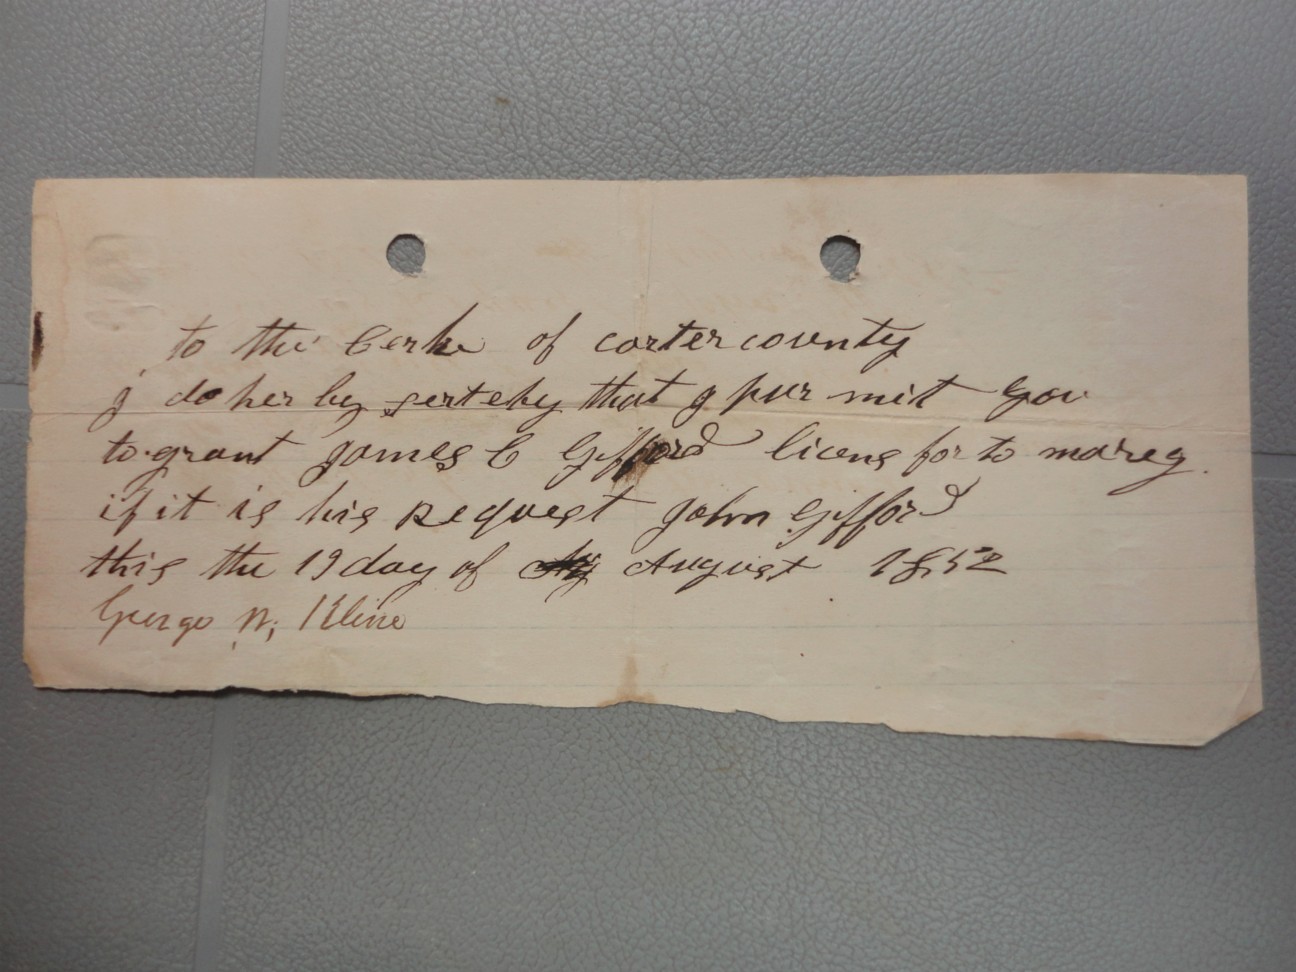 to the Cerke of carter county
I do her by serteby that I pur mit you
to grant James C Gifford licens for to marey.
if it is his Request John Gifford
this the 19 day of August 1852
George W, Kline